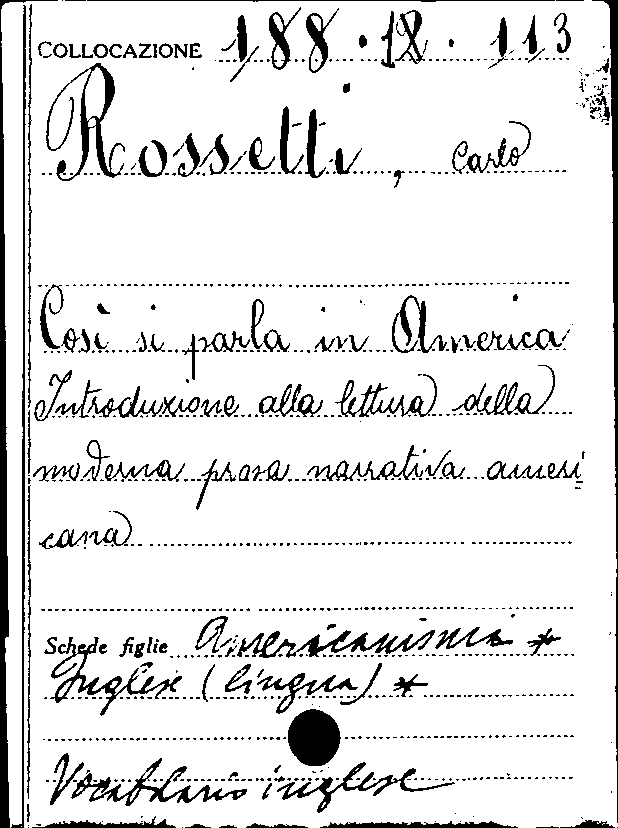 COLLOCAZIONE 188.12.113
Rossetti, Carlo
Così si parla in America
Introduzione alla lettura della
moderna prosa narrativa ameri
cana
Schede figlie Americanismi *
Inglese (lingua) *
Vocabolario inglese